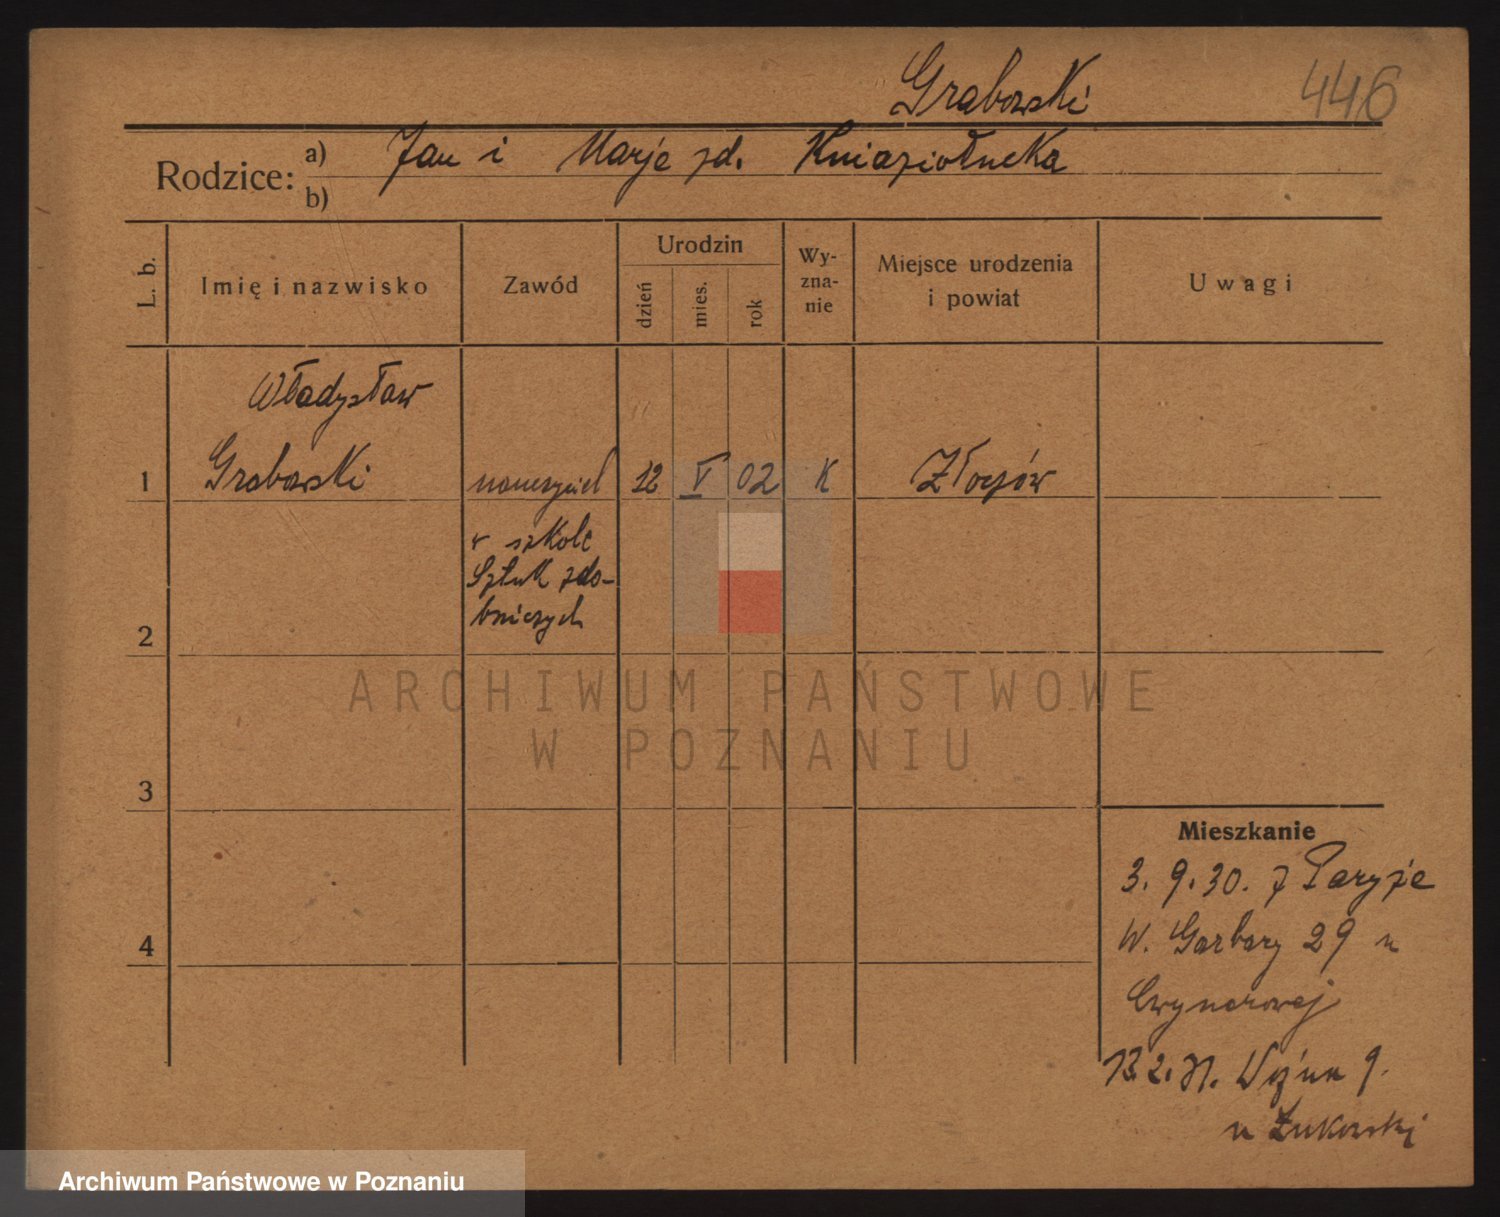 Grabowski 446
Rodzice: a) Jan i Marje zd. Kniaziołucka
b)
L. b. Imię i nazwisko Zawód Urodzin dzień mies. rok Wy-zna-nie Miejsce urodzenia i powiat Uwagi
Władysław
1 Grabowski nauczyciel 12 V 02 K Złoczów
w szkole
Sztuk zdo-
2 bniczych
ARCHIWUM PAŃSTWOWE
W POZNANIU
3
Mieszkanie
3. 9. 30. z Paryża
4 W. Garbary 29 u
Cwynarowej
13. 2. 31. Woźna 9.
u Żukowski
Archiwum Państwowe w Poznaniu